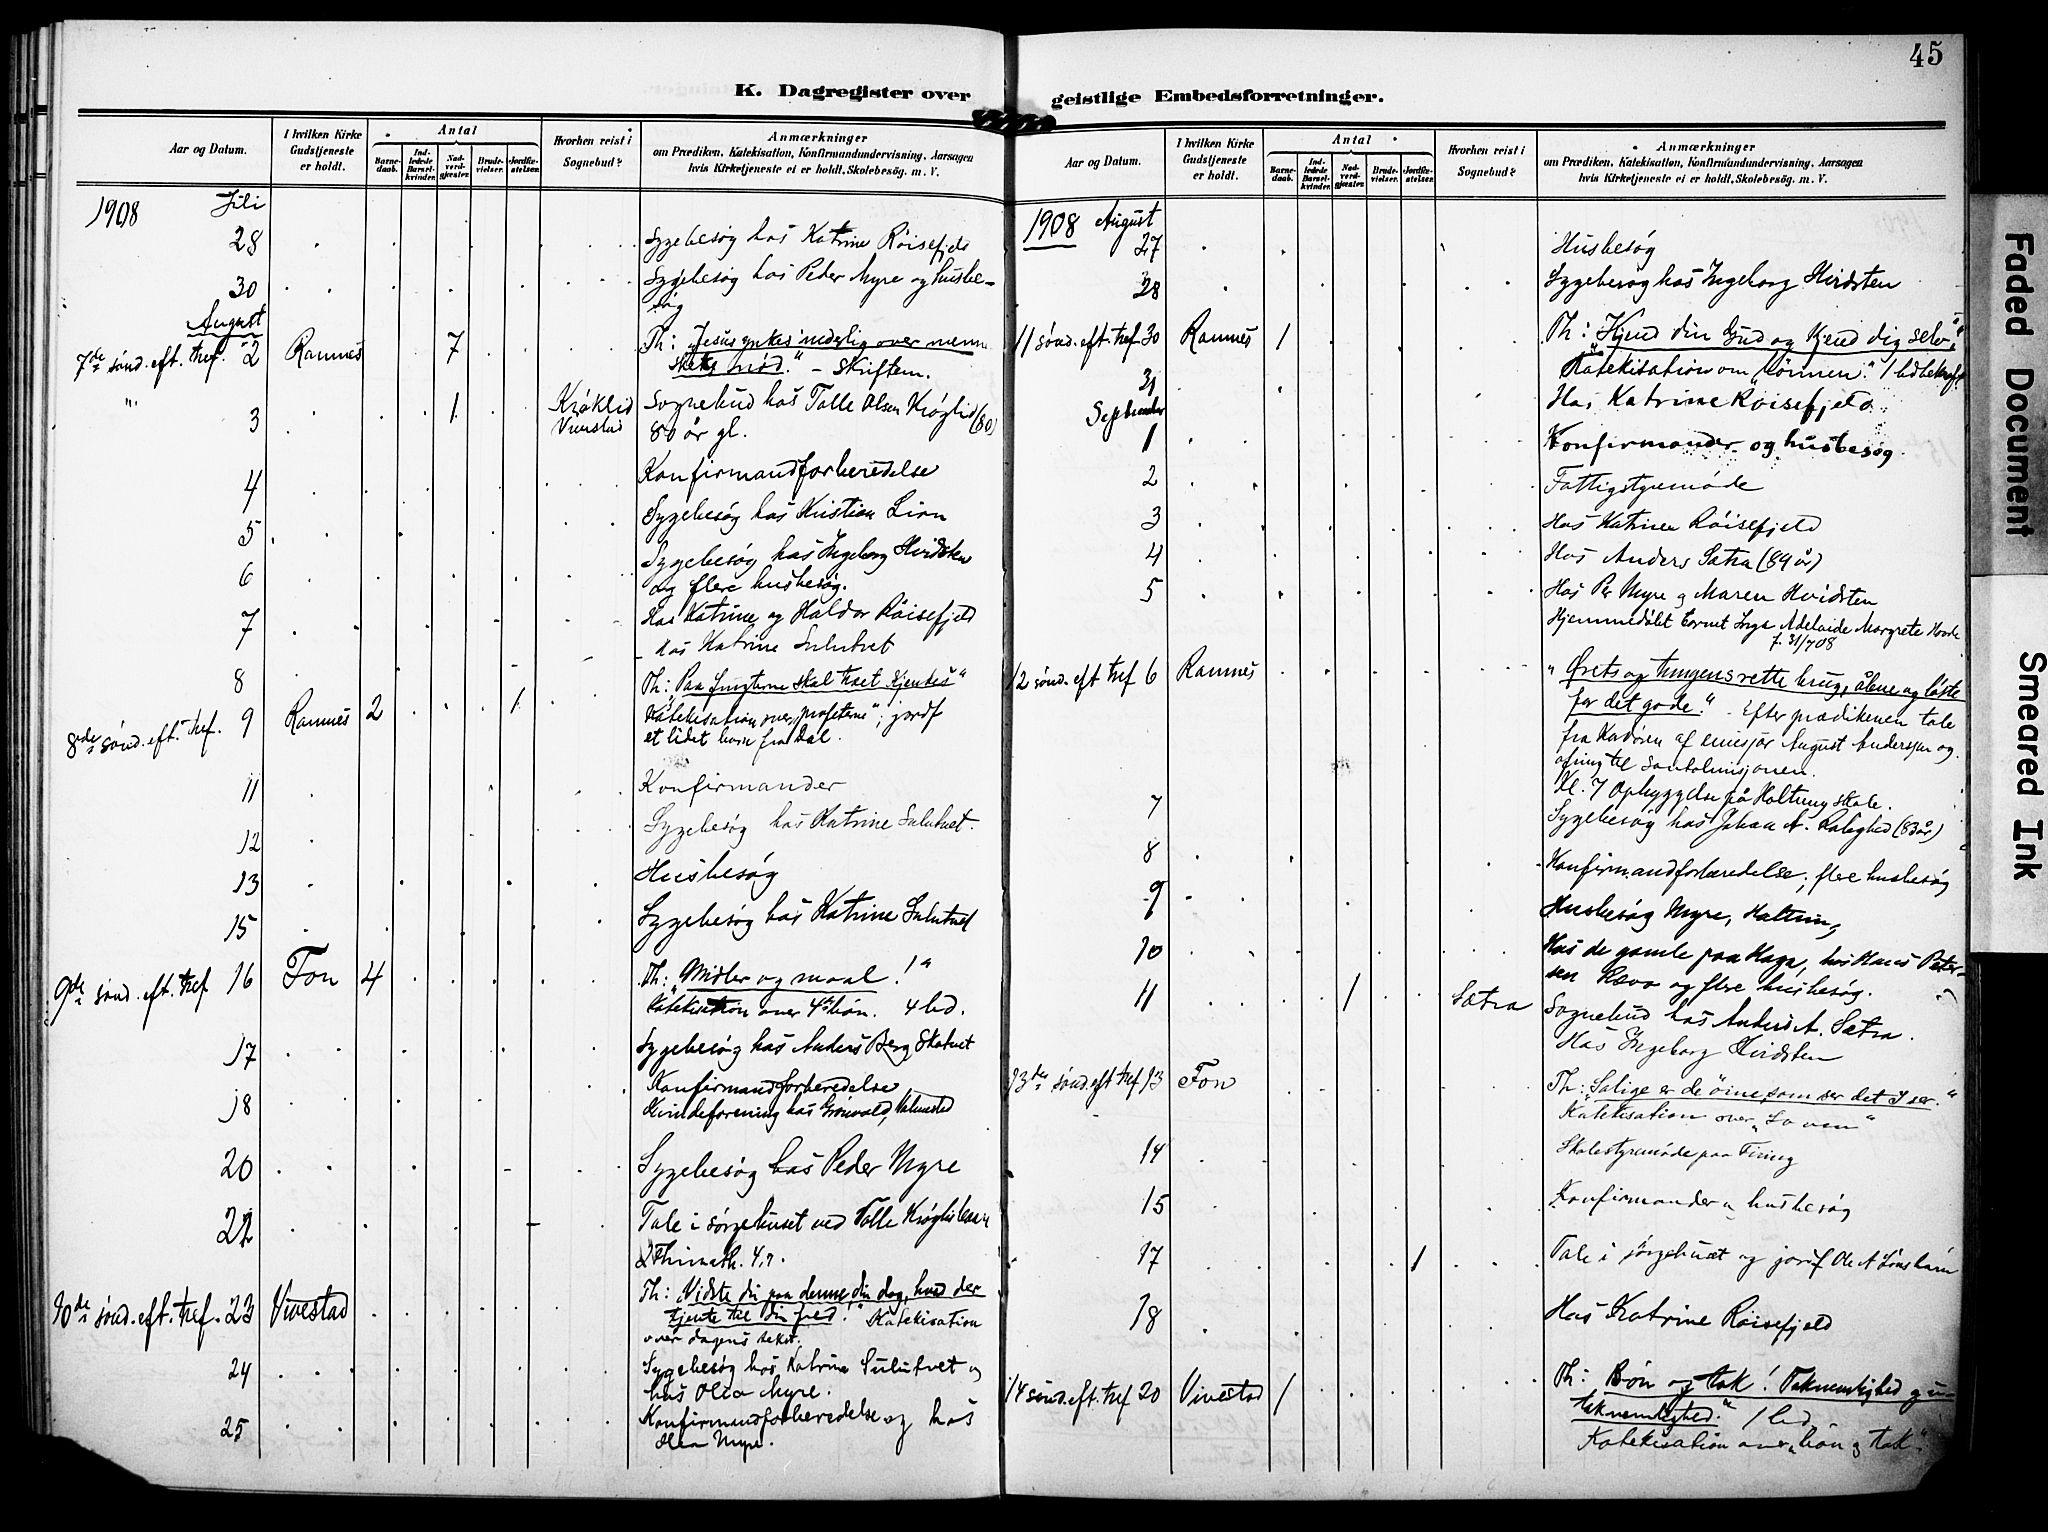 45
K. Dagregister over geistlige Embedsforretninger.
Aar og Datum.
I hvilken Kirke Gudstjeneste er holdt.
Antal
Barne-daab.
Ind-ledede Barsel-kvinder.
Nad-verd-gjester.
Brude-vielser.
Jordfæ-stelser.
Hvorhen reist i Sognebud?
Anmærkninger
om Prædiken, Katekisation, Konfirmandundervisning, Aarsagen
hvis Kirketjeneste ei er holdt, Skolebesøg. m. V.
1908 Juli
28 Sygebesøg hos Katrine Röisefjeld
30 Sygebesøg hos Peder Myre og husbe-
søg
August
7de sönd. eft. tref. 2 Ramnes 7 Th: "Jesus ynkes inderlig over menne
skets nød." – Skriftem.
3 1 Kröklid Sognebud hos Tolle Olsen Kröglid (80)
Vivestad 80 år gl.
4 Konfirmandforberedelse
5 Sygebesøg hos Kristian Lian
6 Sygebesøg hos Ingeborg Hvidsten
og flere husbesøg.
7 Hos Katrine og Haldor Röisefjeld
8 – hos Katrine Sulutvet
8de sönd. eft. tref. 9 Ramnes 2 1 Th: "Paa frugterne skal træet kjendes"
Katekisation over "profeterne"; jordf
et lidet barn fra Dal.
11 Konfirmander
12 Sygebesøg hos Katrine Sulutvet.
13 Husbesøg
15 Sygebesøg hos Katrine Sulutvet
9de sönd. eft. tref 16 Fon 4 Th: "Midler og maal!"
Katekisation over 4de bön. 4 bd.
17 Sygebesøg hos Anders Berg Skatvet
18 Konfirmandforberedelse
Kvindeforening hos Grönvold,
20 Sygebesøg hos Peder Myre
22 Tale i sörgehuset ved Tolle
2 Thimoth. 4,7.
10de sönd. eft. tref. 23 Vivestad Th: "Vidste du paa denne din dag, hvad der
tjente til din fred!" Katekisation
over dagens tekst.
24 Sygebesøg hos Katrine Sulutvet og
hos Olea Myre.
25 Konfirmandforberedelse og hos
Olea Myre.
K. Dagregister over geistlige Embedsforretninger.
Aar og Datum.
I hvilken Kirke Gudstjeneste er holdt.
Antal
Barne-daab.
Ind-ledede Barsel-kvinder.
Nad-verd-gjester.
Brude-vielser.
Jordfæ-stelser.
Hvorhen reist i Sognebud?
Anmærkninger
om Prædiken, Katekisation, Konfirmandundervisning, Aarsagen
hvis Kirketjeneste ei er holdt, Skolebesøg. m. V.
1908 August
27 Husbesøg
28 Sygebesøg hos Ingeborg Hvidsten
11 sönd. eft. tref. 30 Ramnes 1 Th: "Kjend din Gud og kjend dig selv!"
Katekisation om "bönnen." 1 bd
31 Hos Katrine Röisefjeld
September
1 Konfirmander og husbesøg
2 Fattigstyremöde
3 Hos Katrine Röisefjeld
4 Hos Anders Sætra (84 år)
5 Hos Per Myre og Maren Hvidsten
Hjemmedöbt barnet Inga Adelaide Margrete
f. 31/7 08
12 sönd. eft tref 6 Ramnes "Ørets og tungens rette brug, åbne og löste
for det gode." – Efter prædikenen tale
fra Kordören af emisær August Anderssen og
ofring til Santalmisjonen.
Kl. 7 Opbyggelse på Haltung skole.
7 Sygebesøg hos Johan A. (83 år)
8 Konfirmandforberedelse; flere husbesøg
9 Husbesøg Myre,
10 Hos de gamle paa Haga, hos Hans Peter-
sen og flere husbesøg.
11 1 Sætra Sognebud hos Anders A. Sætra.
Hos Ingeborg Hvidsten
13de sönd. eft tref 13 Fon Th: "Salige er de öine som ser det I ser."
Katekisation over "Loven"
14 Skolestyremöde paa
15 Konfirmander og husbesøg
17 1 Tale i sörgehuset og jordf Ole A
18 Hos Katrine Röisefjeld
14 sönd. eft. tref 20 Vivestad 1 Th: "Bön og tak! Taknemlighed og u-
taknemlighed." 1 bd
Katekisation over "bön og tak".
Faded Document
Smeared Ink